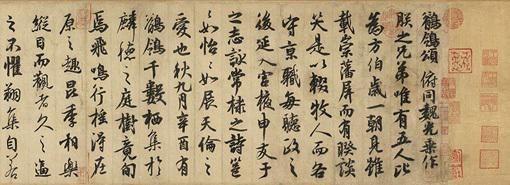 鶺鴒頌 俯同魏光乘作
朕之兄弟唯有五人比
為方伯歲一朝見雖
載崇藩屏而有睽談
笑是以輟牧人而各
守京職每聽政之
後延入宮掖申友于
之志詠常棣之詩邕
〻如怡〻如展天倫之
愛也秋九月辛酉有
鶺鴒千數栖集於
麟德之庭樹竟旬
焉飛鳴行搖得在
原之趣昆季相樂
縱目而觀者久之逼
之不懼翔集自若